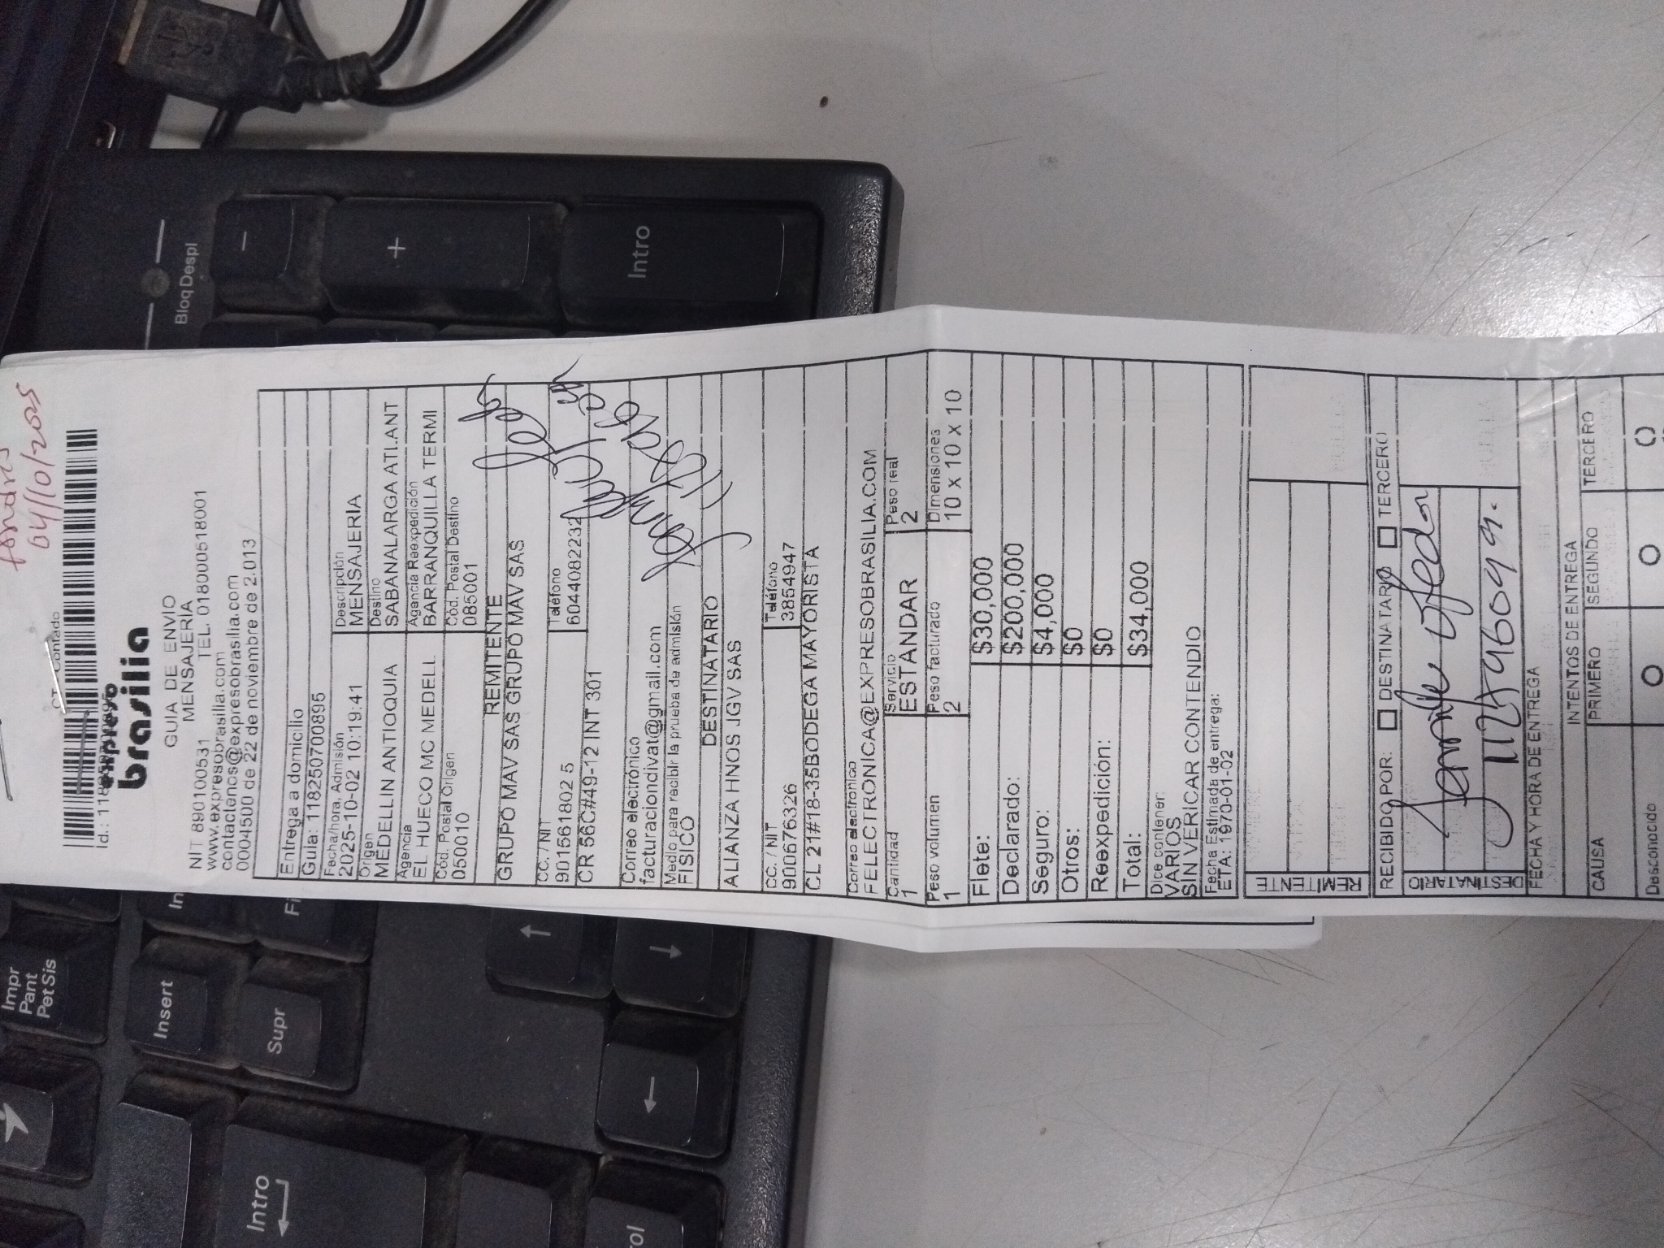 04/10/2025
CT - Contado
expreso
brasilia
GUIA DE ENVIO
MENSAJERIA
NIT 890100531 TEL. 018000518001
www.expresobrasilia.com
contactenos@expresobrasilia.com
0004500 de 22 de noviembre de 2.013
Entrega a domicilio
Guia: 118250700895
Fecha/hora. Admisión Descripción
2025-10-02 10:19:41 MENSAJERIA
Origen Destino
MEDELLIN ANTIOQUIA SABANALARGA ATLANT
Agencia Agencia Reexpedición
EL HUECO MC MEDELL BARRANQUILLA TERMI
Cód. Postal Origen Cód. Postal Destino
050010 085001
REMITENTE
GRUPO MAV SAS GRUPO MAV SAS
CC. / NIT Teléfono
901561802 5 6044082232
CR 56C#49-12 INT 301
Correo electrónico
facturaciondivat@gmail.com
Medio para recibir la prueba de admisión
FISICO
DESTINATARIO
ALIANZA HNOS JGV SAS
CC. / NIT Teléfono
900676326 3854947
CL 21#18-35BODEGA MAYORISTA
Correo electrónico
FELECTRONICA@EXPRESOBRASILIA.COM
Cantidad Servicio Peso real
1 ESTANDAR 2
Peso volumen Peso facturado Dimensiones
1 2 10 x 10 x 10
Flete: $30,000
Declarado: $200,000
Seguro: $4,000
Otros: $0
Reexpedición: $0
Total: $34,000
Dice contener:
VARIOS
SIN VERICAR CONTENDIO
Fecha Estimada de entrega:
ETA: 1970-01-02
REMITENTE
RECIBIDO POR: DESTINATARIO TERCERO
DESTINATARIO
FECHA Y HORA DE ENTREGA
INTENTOS DE ENTREGA
CAUSA PRIMERO SEGUNDO TERCERO
Desconocido
Bloq Despl
-
+
Intro
Impr
Pant
PetSis
Insert
Supr
In
Fi
Intro